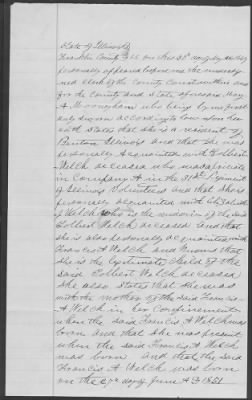 State of Illinois
Franklin County SS. On this 30th day of
personally appeared before me the undersigned
clerk of the County Court within and
for the County and State aforesaid Mary
A Mooringham who being by me first
duly sworn according to law upon her
oath states that she is a resident of
Benton Illinois and that she was
personally acquainted with Colbert
Welch deceased who was a private
in Company A in the 31st Regiment
of Illinois Volunteers and that she is
personally acquainted with Elizabeth
Welch who is the widow of the said
Colbert Welch deceased and that
she is also personally acquainted with
Francis A Welch and knows that
she is the legitimate Child of the
said Colbert Welch deceased
She also states that she was
with the mother of the said Francis
A Welch in her confinement
when the said Francis A Welch was
born and that she was present
when the said Francis A Welch
was born and that the said
Francis A Welch was born
on the day of June AD 1851